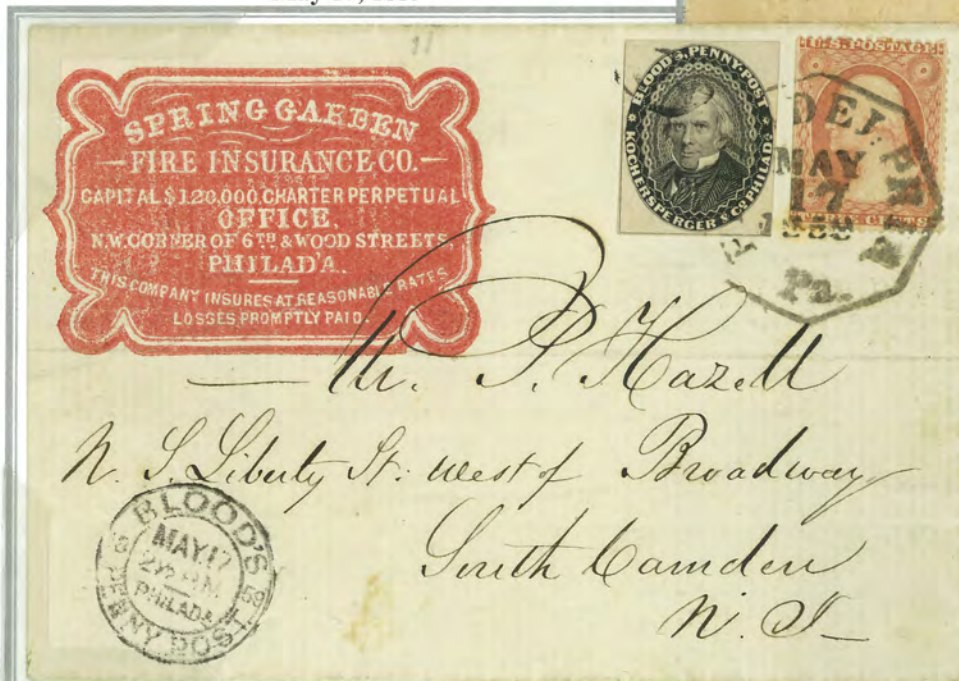 11
SPRING GARDEN
FIRE INSURANCE CO.
CAPITAL $120,000. CHARTER PERPETUAL
OFFICE,
N.W. CORNER OF 6TH & WOOD STREETS,
PHILAD'A.
THIS COMPANY INSURES AT REASONABLE RATES
LOSSES PROMPTLY PAID.
BLOOD'S, PENNY-POST
KOCHERSPERGER & CO. PHILADA.
U.S. POSTAGE
THREE CENTS
MAY
17
1859
Pa.
Mr. P. Hazell
N. S. Liberty St: west of Broadway
South Camden
N. J
BLOOD'S
MAY. 17
2½ P.M.
PHILADA
59
PENNY POST